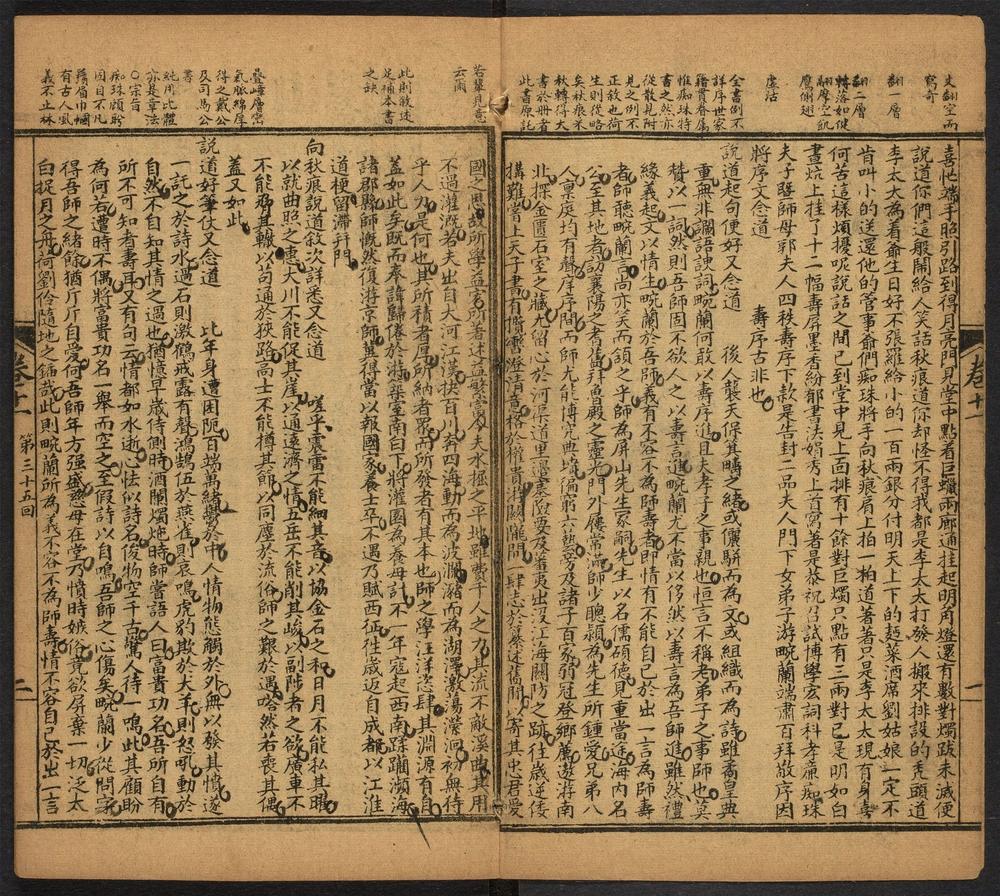 喜忙端手照引路到得月亮門見堂中點着巨蠟兩廊通挂起明角燈還有數對燭跋未滅便
說道你們這般鬧給人笑話秋痕道你却怪不得我都是李太太打發人搬來排設的禿頭道
李太太為着爺生日好不張羅給小的一百兩銀分付明天上下的麪菜酒席劉姑娘一定不
肯叫小的送還他的管事爺們痴珠將手向秋痕肩上拍一拍道著著只是李太太現有身喜
何苦這樣煩擾呢說話之間已到堂中見上面排有十餘對巨燭只點有三兩對已是明如白
晝炕上挂了十二幅壽屏墨香紛郁書法娟秀上首寫著是恭祝召試博學宏詞科孝廉痴珠
夫子暨師母郭夫人四秩壽序下款是告封二品夫人門下女弟子游畹蘭端肅百拜敬序因
將序文念道　壽序古非也
說道起句便好又念道　後人襲天保箕疇之緒或儷駢而為文或組織而為詩雖喬皇典
重無非讕語諛詞畹蘭何敢以壽序進且夫孝子之事親也恒言不稱老弟子之事師也莫
贊以一詞然則吾師固不欲人之以壽言進畹蘭尤不當以侈然以壽言為吾師進雖然禮
緣義起文以情生畹蘭於吾師義有不容不為師壽者即情有不能自已於出一言為師壽
者師聽畹蘭言當亦笑而頷之乎師為屏山先生冢嗣先生以名儒碩德見重當途海內名
公至其地者訪襄陽之耆舊拜魚殿之靈光門外屨常滿師少聰穎為先生所鍾愛兄弟八
人稟庭均有聲庠序間而師尤能博究典墳徧窮六藝旁及諸子百家弱冠登鄉薦遨游南
北探金匱石室之藏尤留心於河渠道里邊塞險要及蕃夷出沒江海關防之跡往歲逆倭
搆難嘗上天子書有攬轡澄清意格於權貴一肆志於纂述舊聞以寄其忠君愛
文翻空而
寫奇
翻一層
翻二層
轉落如健
翻摩空㐲
鷹側翅
虛活
全書例不
詳序世家
籍貫眷屬
惟痴珠特
書之然亦
從散見附
見之例不
正敘也荷
生則從略
矣秋痕采
秋轉得大
書於冊者
此書原託
卷十一
一
國之思故所學益宏所著述益繁富今夫水掘之平地雖費千人之力其流不敵溪曲其用
不過灌溉若夫出自大河江漢挾百川奔四海動而為波瀾瀦而為湖澤激蕩瀠洄初無待
乎人力是何也其所積者厚所納者衆而所發者有其本也師之學汪洋恣肆其淵源有自
蓋如此矣既而奉諱歸倦於游築室南曰下將灌園為養母計不一年寇起西南蹂躪瀕海
諸郡縣師慨然復游京師冀得當以報國家養士卒不遇乃賦西征往歲返自成都以江淮
道梗留滯幷門
向秋痕說道敘次詳悉又念道　嗟乎震雷不能細其音以協金石之和日月不能私其曜
以就曲照之惠大川不能促其崖以適速濟之情五岳不能削其峻以副陟者之欲廣車不
不能脅其轍以苟通於狹路高士不能撙其節以同塵於流俗師之艱於遇嗒然若喪其偶
蓋又如此
說道好筆仗又念道　比年身遭困阨百端萬緒鬱於中人情物態觸於外無以發其憤遂
一託之於詩水過石則激鶴戒露有聲鴻鵠伍於燕雀則哀鳴虎豹欺於犬羊則怒吼動於
自然不自知其情之過也猶憶早歲侍側時酒闌燭灺時師嘗語人曰富貴功名吾所自有
所不可知者壽耳又有句云情都如水逝心怯以詩名俊物空千古驚人待一鳴此其顧盼
為何若遭時不偶將富貴功名一舉而空之至假詩以自鳴吾師之心傷矣畹蘭少從問字
得吾師之緒餘猶斤斤自愛何吾師年方強盛慈母在堂乃憤時嫉俗竟欲屏棄一切泛太
白捉月之舟荷劉伶隨地之鍤哉此則畹蘭所為義不容不為師壽情不容自已於出一言
若輩見意
云爾
此則散述
足補本書
之缺
疊嶂層巒
氣脈綿厚
得之戴公
及司馬公
書
純用比體
亦是章法
○宗旨
痴珠顧盼
固自不凡
鬚眉巾幗
有古人風
義不止林
卷十一
第三十五回
二